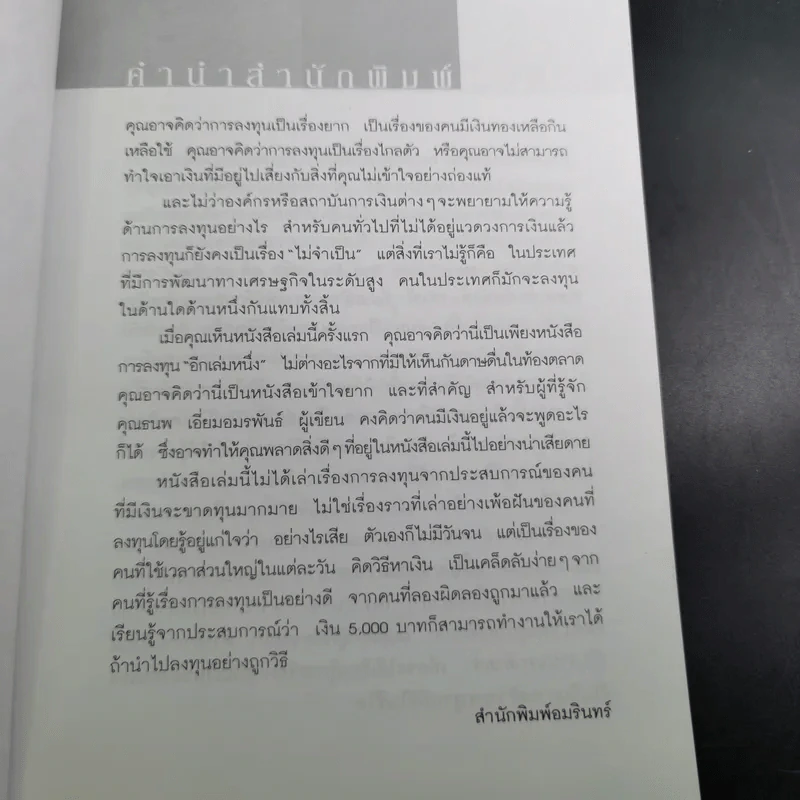 คำนำสำนักพิมพ์
คุณอาจคิดว่าการลงทุนเป็นเรื่องยาก เป็นเรื่องของคนมีเงินทองเหลือกิน
เหลือใช้ คุณอาจคิดว่าการลงทุนเป็นเรื่องไกลตัว หรือคุณอาจไม่สามารถ
ทำใจเอาเงินที่มีอยู่ไปเสี่ยงกับสิ่งที่คุณไม่เข้าใจอย่างถ่องแท้
และไม่ว่าองค์กรหรือสถาบันการเงินต่างๆ จะพยายามให้ความรู้
ด้านการลงทุนอย่างไร สำหรับคนทั่วไปที่ไม่ได้อยู่แวดวงการเงินแล้ว
การลงทุนก็ยังคงเป็นเรื่อง “ไม่จำเป็น” แต่สิ่งที่เราไม่รู้ก็คือ ในประเทศ
ที่มีการพัฒนาทางเศรษฐกิจในระดับสูง คนในประเทศก็มักจะลงทุน
ในด้านใดด้านหนึ่งกันแทบทั้งสิ้น
เมื่อคุณเห็นหนังสือเล่มนี้ครั้งแรก คุณอาจคิดว่านี่เป็นเพียงหนังสือ
การลงทุน “อีกเล่มหนึ่ง” ไม่ต่างอะไรจากที่มีให้เห็นกันดาษดื่นในท้องตลาด
คุณอาจคิดว่านี่เป็นหนังสือเข้าใจยาก และที่สำคัญ สำหรับผู้ที่รู้จัก
คุณธนพ เอี่ยมอมรพันธ์ ผู้เขียน คงคิดว่าคนมีเงินอยู่แล้วจะพูดอะไร
ก็ได้ ซึ่งอาจทำให้คุณพลาดสิ่งดีๆ ที่อยู่ในหนังสือเล่มนี้ไปอย่างน่าเสียดาย
หนังสือเล่มนี้ไม่ได้เล่าเรื่องการลงทุนจากประสบการณ์ของคน
ที่มีเงินจะขาดทุนมากมาย ไม่ใช่เรื่องราวที่เล่าอย่างเพ้อฝันของคนที่
ลงทุนโดยรู้อยู่แก่ใจว่า อย่างไรเสีย ตัวเองก็ไม่มีวันจน แต่เป็นเรื่องของ
คนที่ใช้เวลาส่วนใหญ่ในแต่ละวัน คิดวิธีหาเงิน เป็นเคล็ดลับง่ายๆ จาก
คนที่รู้เรื่องการลงทุนเป็นอย่างดี จากคนที่ลองผิดลองถูกมาแล้ว และ
เรียนรู้จากประสบการณ์ว่า เงิน 5,000 บาทก็สามารถทำงานให้เราได้
ถ้านำไปลงทุนอย่างถูกวิธี
สำนักพิมพ์อมรินทร์